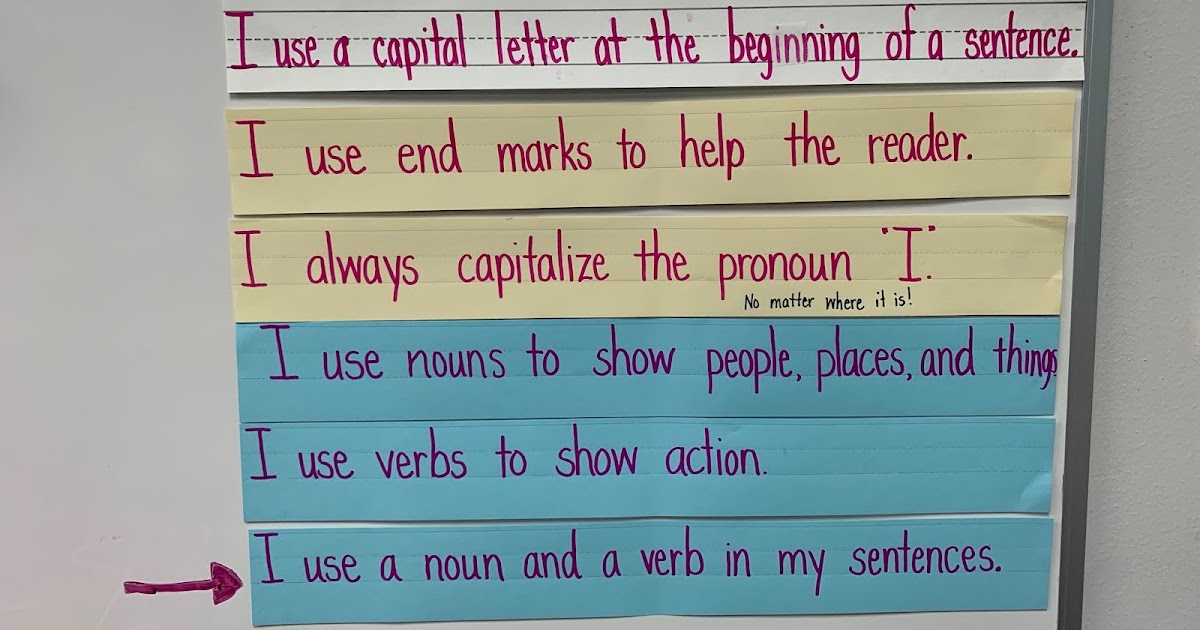 I use a capital letter at the beginning of a sentence.
I use end marks to help the reader.
I always capitalize the pronoun "I".
No matter where it is!
I use nouns to show people, places, and things
I use verbs to show action.
I use a noun and a verb in my sentences.